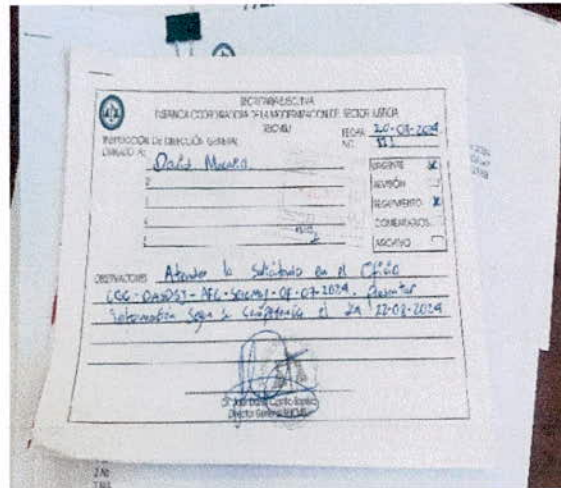 SECRETARIA EJECUTIVA
INSTANCIA COORDINADORA DE LA MODERNIZACION DEL SECTOR JUSTICIA
SEICMSJ
INSTRUCCIÓN DE DIRECCIÓN GENERAL
FECHA 20-08-2024
NO.
DIRIGIDO A:
David
2
3
4
5
URGENTE X
REVISIÓN
SEGUIMIENTO X
COMENTARIOS
ARCHIVO
OBSERVACIONES Atender lo Solicitado en el Oficio
CGC-DASDSJ-AFC-SEICMSJ-OF-07-2024, Presentar
Información Según su Competencia el día 22-08-2024
Director General SEICMSJ